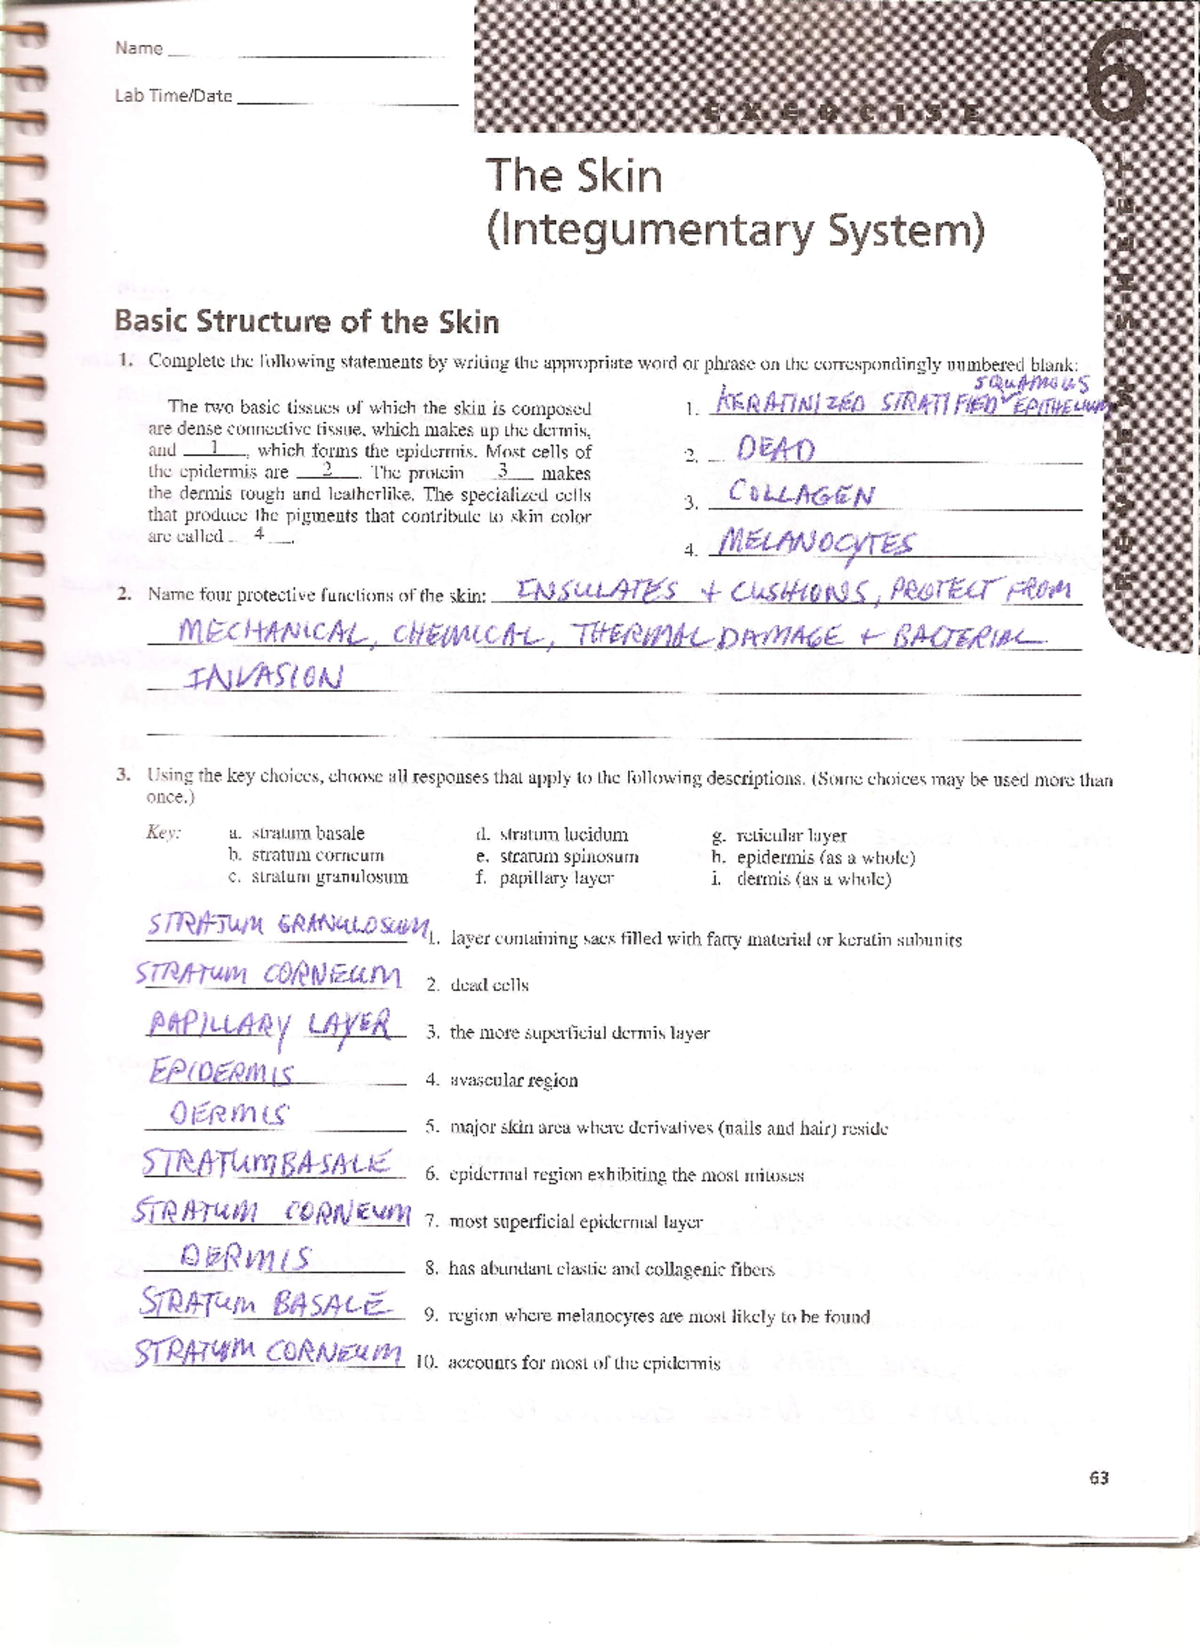 Name
Lab Time/Date
EXERCISE
6
REVIEW SHEET
The Skin
(Integumentary System)
Basic Structure of the Skin
1. Complete the following statements by writing the appropriate word or phrase on the correspondingly numbered blank:
The two basic tissues of which the skin is composed
are dense connective tissue, which makes up the dermis,
and 1, which forms the epidermis. Most cells of
the epidermis are 2. The protein 3 makes
the dermis tough and leatherlike. The specialized cells
that produce the pigments that contribute to skin color
are called 4.
SQUAMOUS
1. KERATINIZED STRATIFIED EPITHELIUM
2. DEAD
3. COLLAGEN
4. MELANOCYTES
2. Name four protective functions of the skin: INSULATES + CUSHIONS, PROTECT FROM
MECHANICAL, CHEMICAL, THERMAL DAMAGE + BACTERIAL
INVASION
3. Using the key choices, choose all responses that apply to the following descriptions. (Some choices may be used more than
once.)
Key: a. stratum basale d. stratum lucidum g. reticular layer
b. stratum corneum e. stratum spinosum h. epidermis (as a whole)
c. stratum granulosum f. papillary layer i. dermis (as a whole)
STRATUM GRANULOSUM 1. layer containing sacs filled with fatty material or keratin subunits
STRATUM CORNEUM 2. dead cells
PAPILLARY LAYER 3. the more superficial dermis layer
EPIDERMIS 4. avascular region
DERMIS 5. major skin area where derivatives (nails and hair) reside
STRATUM BASALE 6. epidermal region exhibiting the most mitoses
STRATUM CORNEUM 7. most superficial epidermal layer
DERMIS 8. has abundant elastic and collagenic fibers
STRATUM BASALE 9. region where melanocytes are most likely to be found
STRATUM CORNEUM 10. accounts for most of the epidermis
63